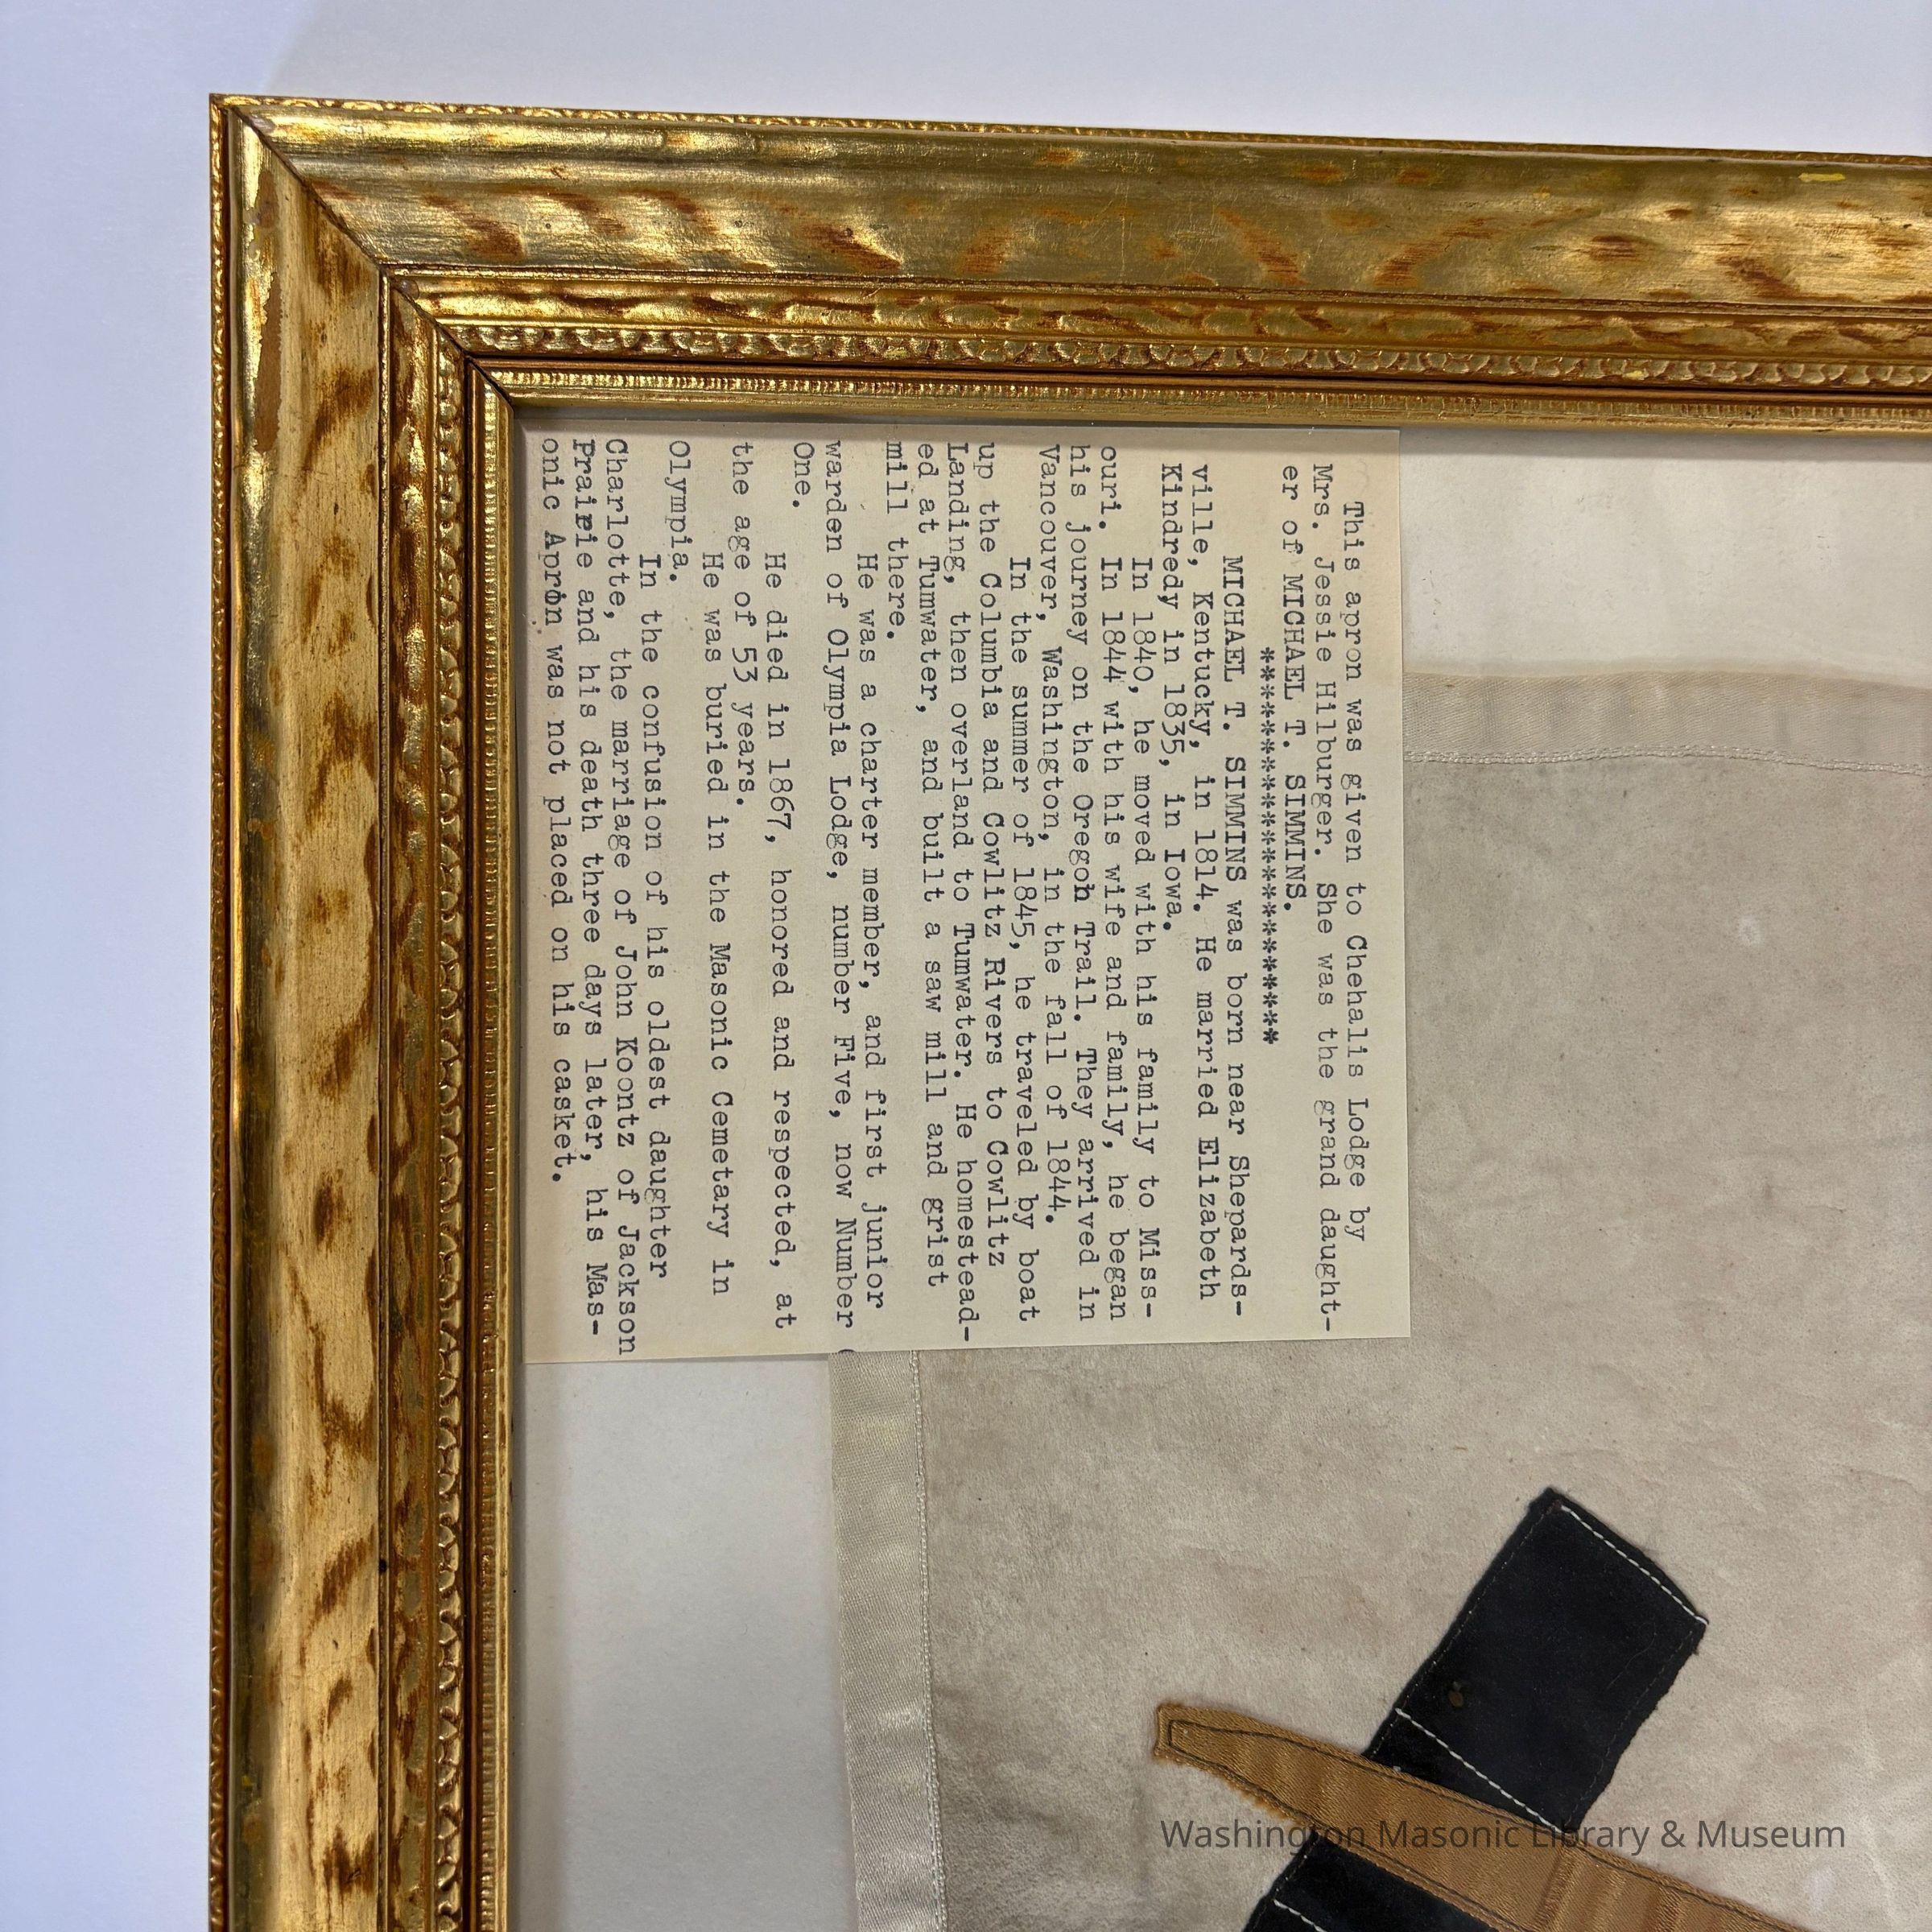 This apron was given to Chehalis Lodge by
Mrs. Jessie Hilburger. She was the grand daught-
er of MICHAEL T. SIMMINS.
**************************
MICHAEL T. SIMMINS was born near Shepards-
ville, Kentucky, in 1814. He married Elizabeth
Kindredy in 1835, in Iowa.
In 1840, he moved with his family to Miss-
ouri. In 1844 with his wife and family, he began
his journey on the Oregon Trail. They arrived in
Vancouver, Washington, in the fall of 1844.
In the summer of 1845, he traveled by boat
up the Columbia and Cowlitz Rivers to Cowlitz
Landing, then overland to Tumwater. He homestead-
ed at Tumwater, and built a saw mill and grist
mill there.
He was a charter member, and first junior
warden of Olympia Lodge, number Five, now Number
One.
He died in 1867, honored and respected, at
the age of 53 years.
He was buried in the Masonic Cemetary in
Olympia.
In the confusion of his oldest daughter
Charlotte, the marriage of John Koontz of Jackson
Prairie and his death three days later, his Mas-
onic Apron was not placed on his casket.
Washington Masonic Library & Museum